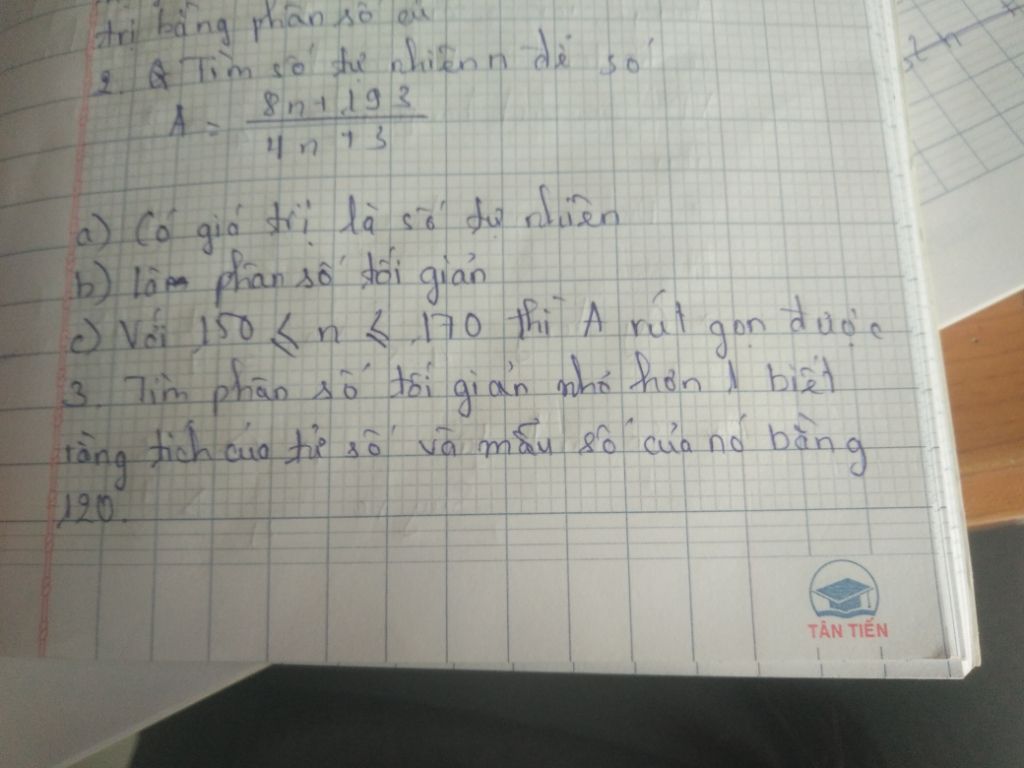 trị bằng phân số
2. Tìm số tự nhiên n để số
A = 8n + 193
4n + 3
a) Có giá trị là số tự nhiên
b) Làm phân số tối giản
c) Với 150 ≤ n ≤ 170 thì A rút gọn được
3. Tìm phân số tối giản nhỏ hơn 1 biết
rằng tích của tử số và mẫu số của nó bằng
120.
TÂN TIẾN